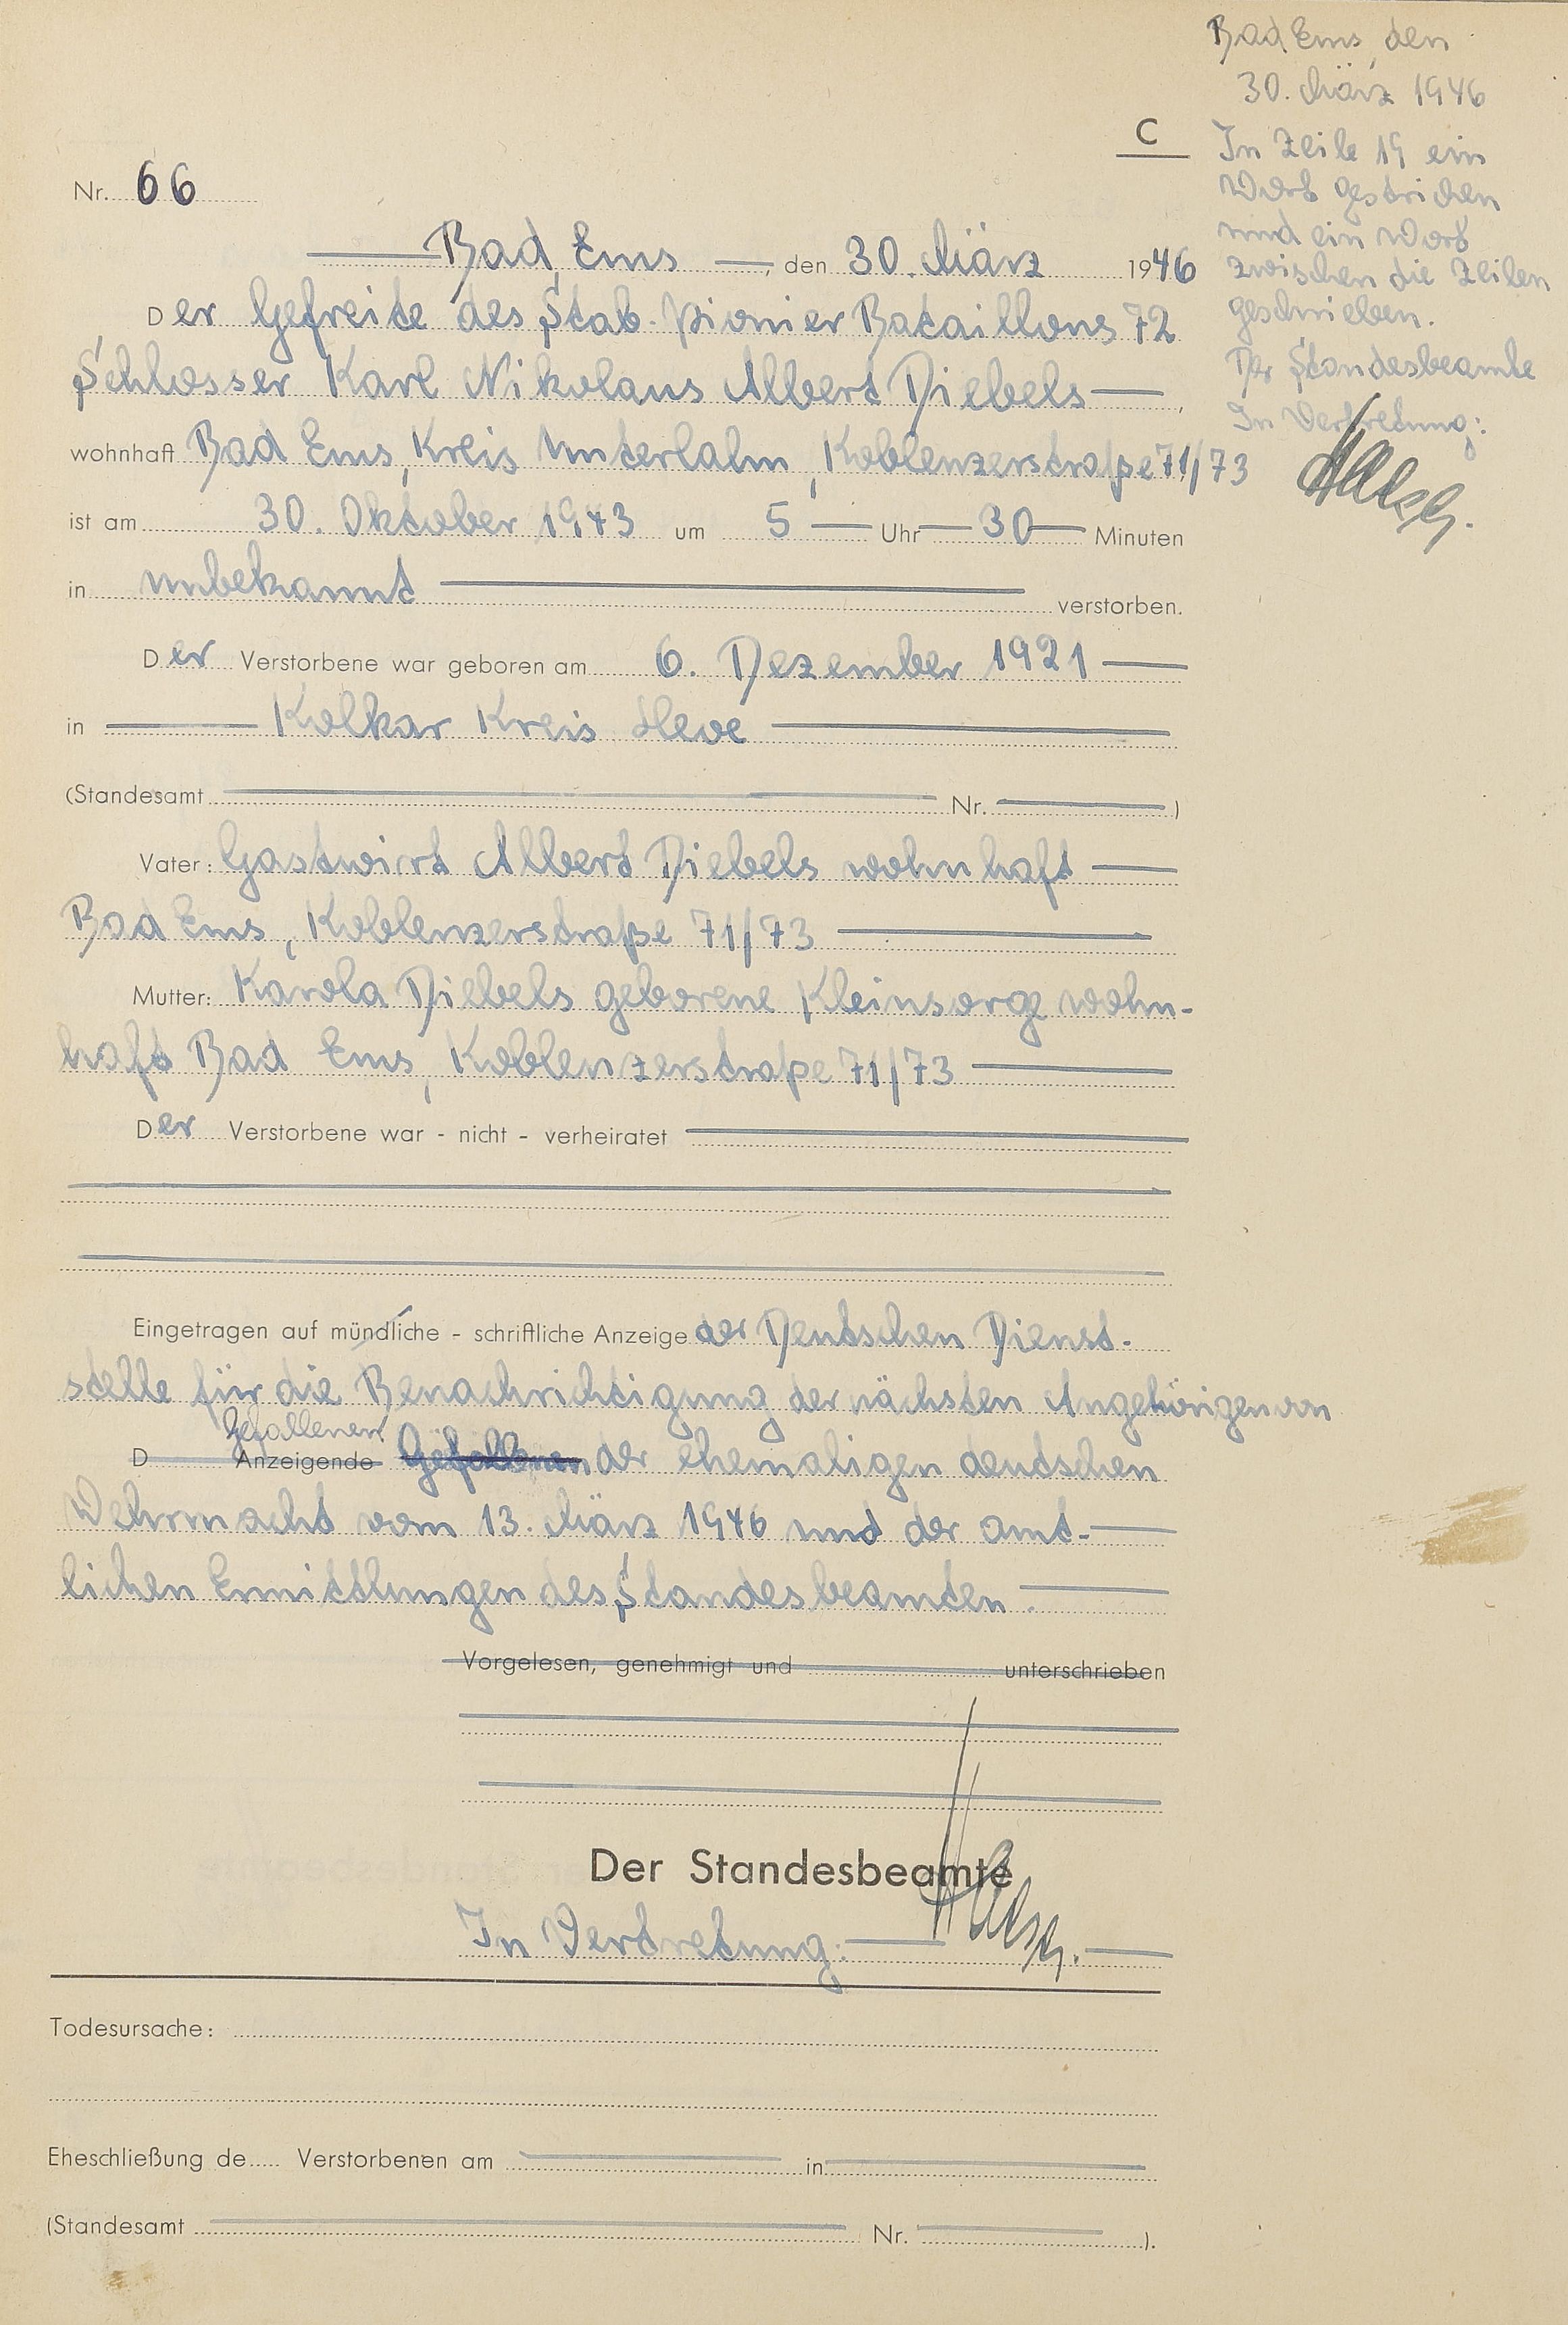 C
Nr. 66
Bad Ems, den 30. März 1946
Der Gefreite des Stab. Pionier Bataillons 72
Schlosser Karl Nikolaus Albert Diebels
wohnhaft Bad Ems, Kreis Unterlahn, Koblenzerstraße 71/73
ist am 30. Oktober 1943 um 5 Uhr 30 Minuten
in unbekannt verstorben.
Der Verstorbene war geboren am 6. Dezember 1921
in Kolkar Kreis Kleve
(Standesamt Nr. )
Vater: Gastwirt Albert Diebels wohnhaft
Bad Ems, Koblenzerstraße 71/73
Mutter: Karola Diebels geborene Kleinsorge wohn-
haft Bad Ems, Koblenzerstraße 71/73
Der Verstorbene war - nicht - verheiratet
Eingetragen auf mündliche - schriftliche Anzeige der Deutschen Dienst-
stelle für die Benachrichtigung der nächsten Angehörigen von
Gefallenen
D Anzeigende Gefallenen der ehemaligen deutschen
Wehrmacht vom 13. März 1946 und der amt-
lichen Ermittlungen des Standesbeamten.
Vorgelesen, genehmigt und unterschrieben
Der Standesbeamte
In Vertretung:
Todesursache:
Eheschließung de Verstorbenen am in
(Standesamt Nr. ).
Bad Ems, den
30. März 1946
In Zeile 19 ein
Wort gestrichen
und ein Wort
zwischen die Zeilen
geschrieben.
Der Standesbeamte
In Vertretung: